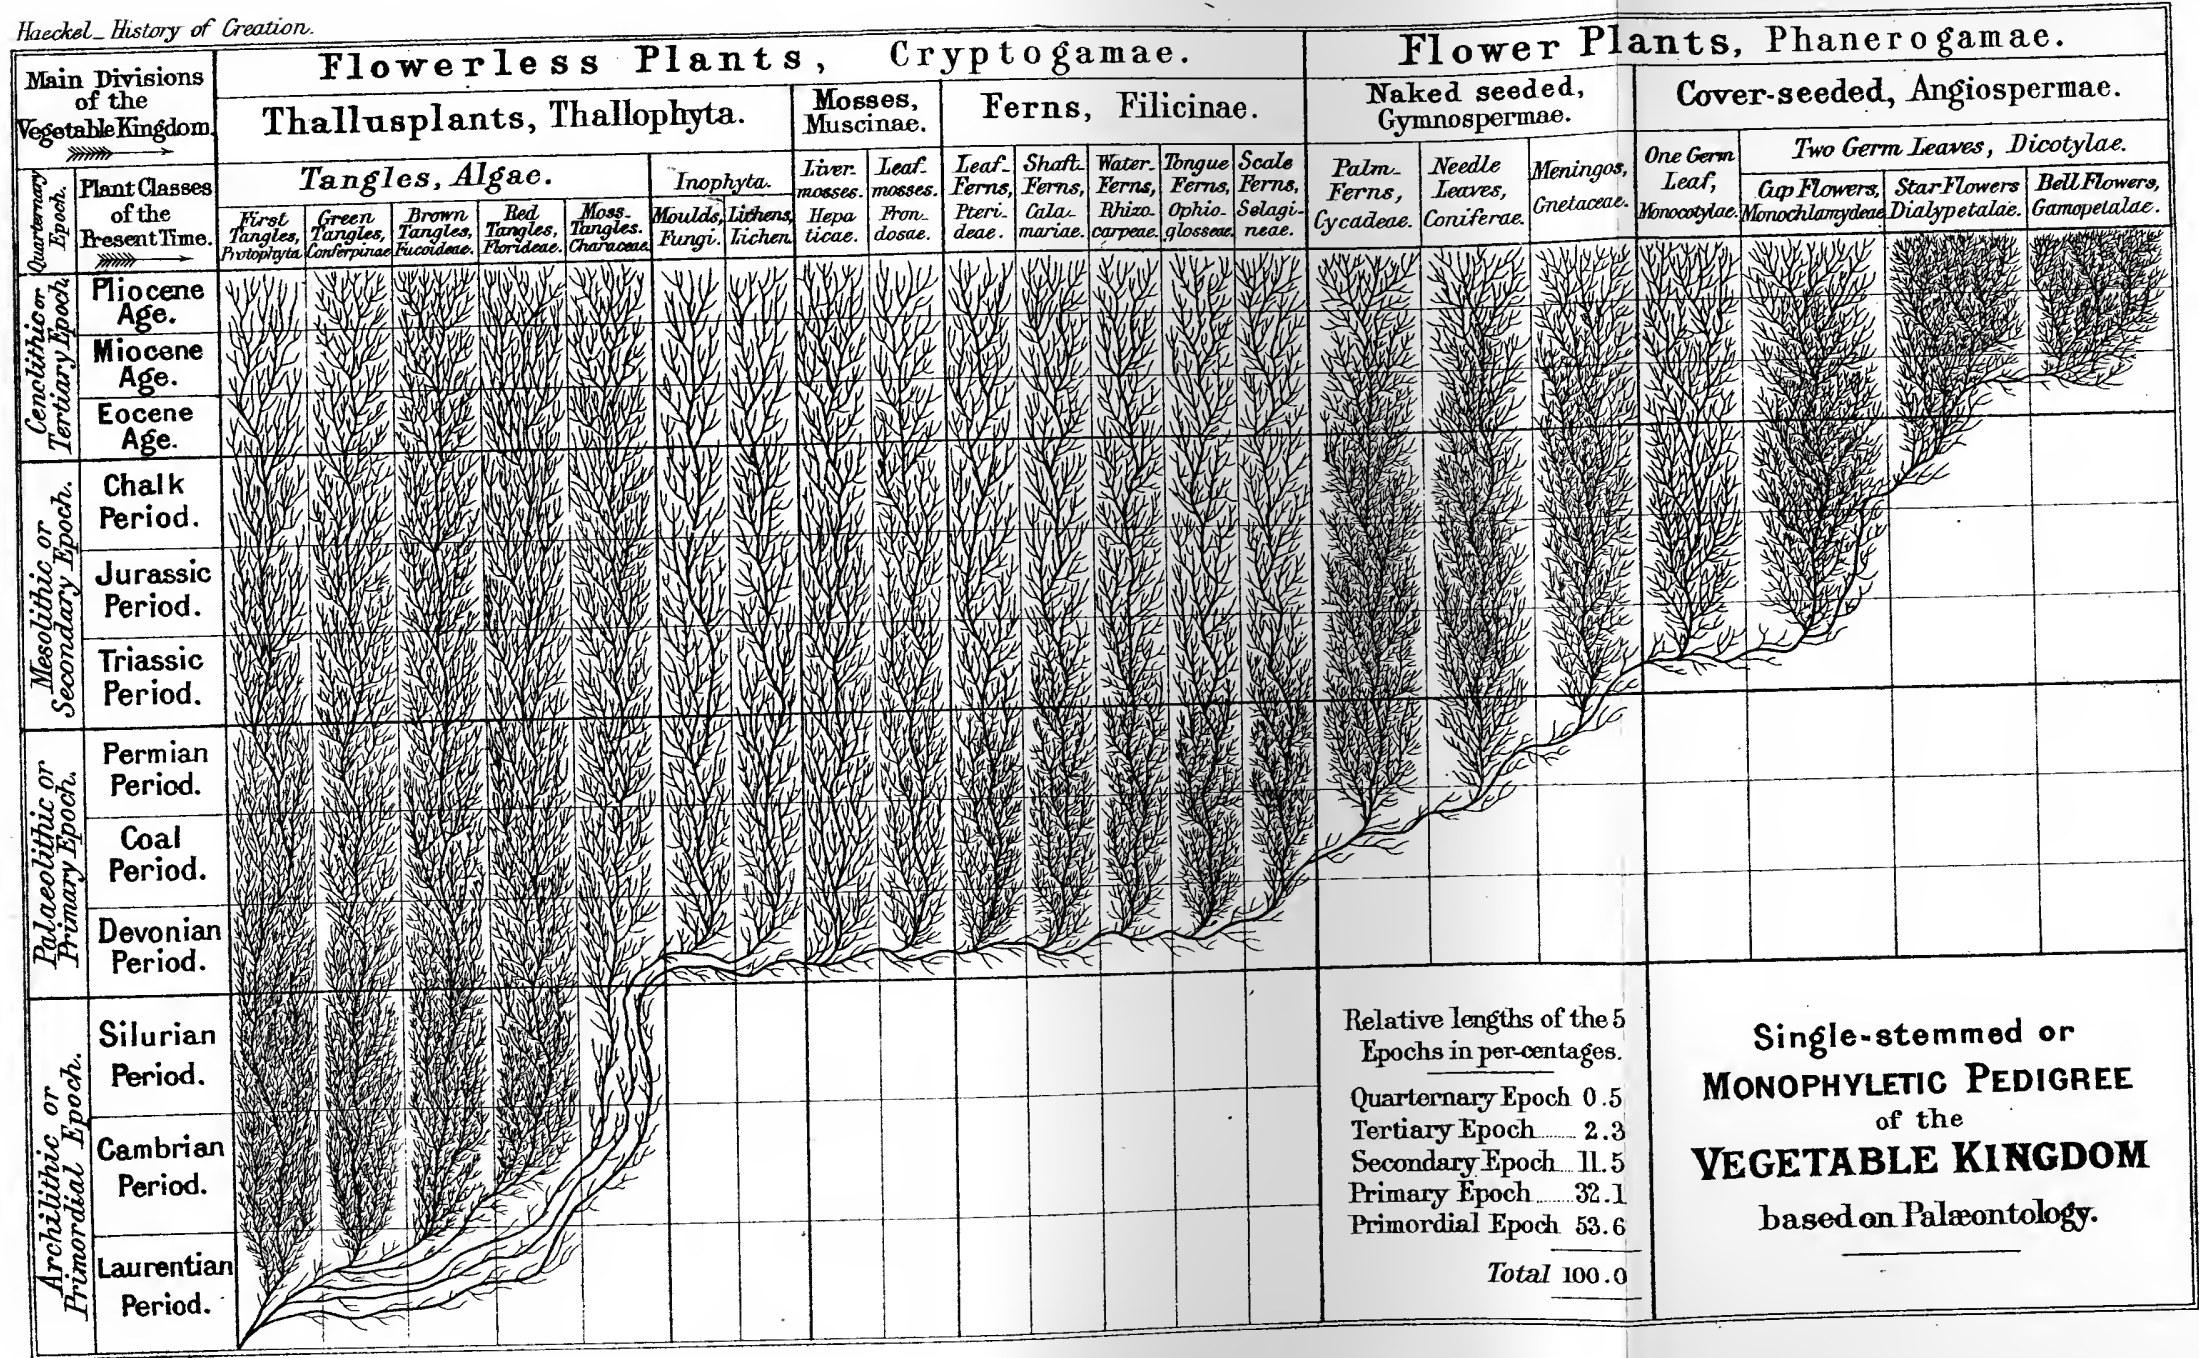 Haeckel_ History of Creation.
Flowerless Plants, Cryptogamae.
Flower Plants, Phanerogamae.
Main Divisions
of the
Vegetable Kingdom.
Thallusplants, Thallophyta.
Mosses,
Muscinae.
Ferns, Filicinae.
Naked seeded,
Gymnospermae.
Cover-seeded, Angiospermae.
Tangles, Algae.
Inophyta.
Two Germ Leaves, Dicotylae.
Quarternary
Epoch.
Plant Classes
of the
Present Time.
First
Tangles,
Protophyta
Green
Tangles,
Conferpinae
Brown
Tangles,
Fucoideae.
Red
Tangles,
Florideae.
Moss-
Tangles.
Characeae.
Moulds,
Fungi.
Lichens,
Lichen.
Liver-
mosses.
Hepa
ticae.
Leaf-
mosses.
Fron-
dosae.
Leaf-
Ferns,
Pteri-
deae.
Shaft-
Ferns,
Cala-
mariae.
Water-
Ferns,
Rhizo-
carpeae.
Tongue
Ferns,
Ophio-
glosseae.
Scale
Ferns,
Selagi-
neae.
Palm-
Ferns,
Cycadeae.
Needle
Leaves,
Coniferae.
Meningos,
Gnetaceae.
One Germ
Leaf,
Monocotylae.
Cup Flowers,
Monochlamydeae
Star Flowers
Dialypetalae.
Bell Flowers,
Gamopetalae.
Cenolithic or
Tertiary Epoch.
Pliocene
Age.
Miocene
Age.
Eocene
Age.
Mesolithic or
Secondary Epoch.
Chalk
Period.
Jurassic
Period.
Triassic
Period.
Palaeolithic or
Primary Epoch.
Permian
Period.
Coal
Period.
Devonian
Period.
Archilithic or
Primordial Epoch.
Silurian
Period.
Cambrian
Period.
Laurentian
Period.
Relative lengths of the 5
Epochs in per-centages.
Quarternary Epoch 0.5
Tertiary Epoch 2.3
Secondary Epoch 11.5
Primary Epoch 32.1
Primordial Epoch 53.6
Total 100.0
Single-stemmed or
MONOPHYLETIC PEDIGREE
of the
VEGETABLE KINGDOM
based on Palæontology.